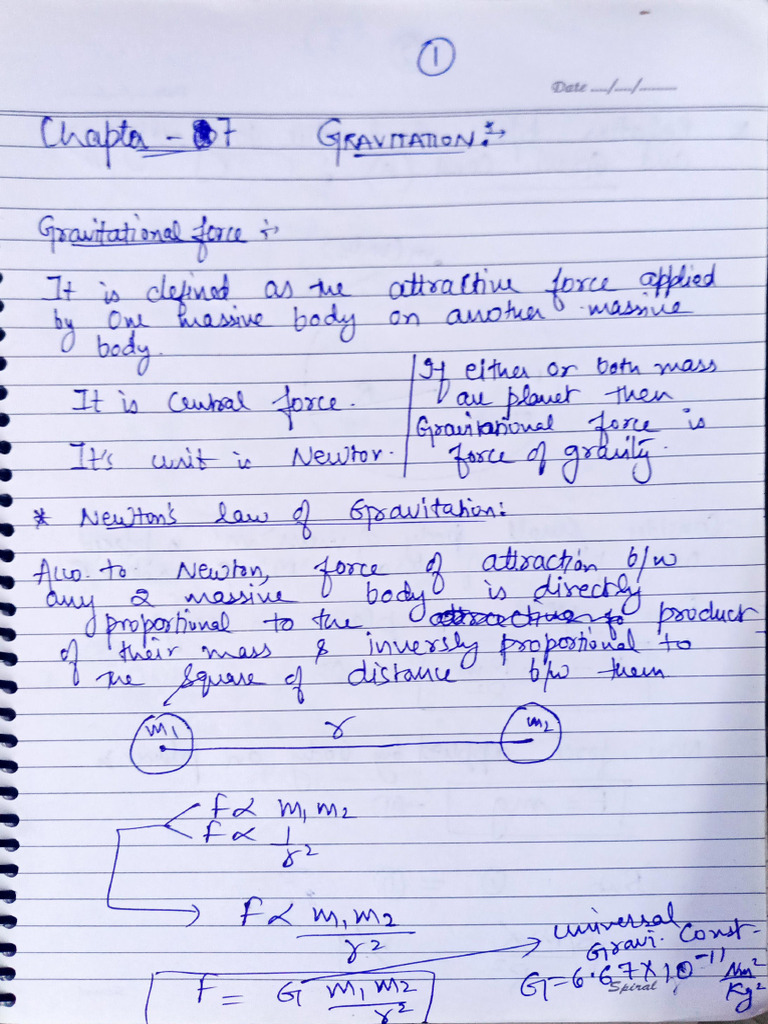 1
Date __/__/____
Chapter - 07 GRAVITATION:→
Gravitational force :→
It is defined as the attractive force applied
by one massive body on another massive
body.
It is central force.
It's unit is Newton.
If either or both mass
are planet then
Gravitational force is
force of gravity.
* Newton's law of Gravitation:
Acco. to Newton, force of attraction b/w
any 2 massive body is directly
proportional to the product
of their mass & inversly proportional to
the square of distance b/w them
m₁ r m₂
F ∝ m₁ m₂
F ∝ 1/r²
F ∝ m₁ m₂/r²
F = G m₁ m₂/r²
universal
Gravi. Const-
G = 6.67 × 10⁻¹¹ Nm²/Kg²
Spiral